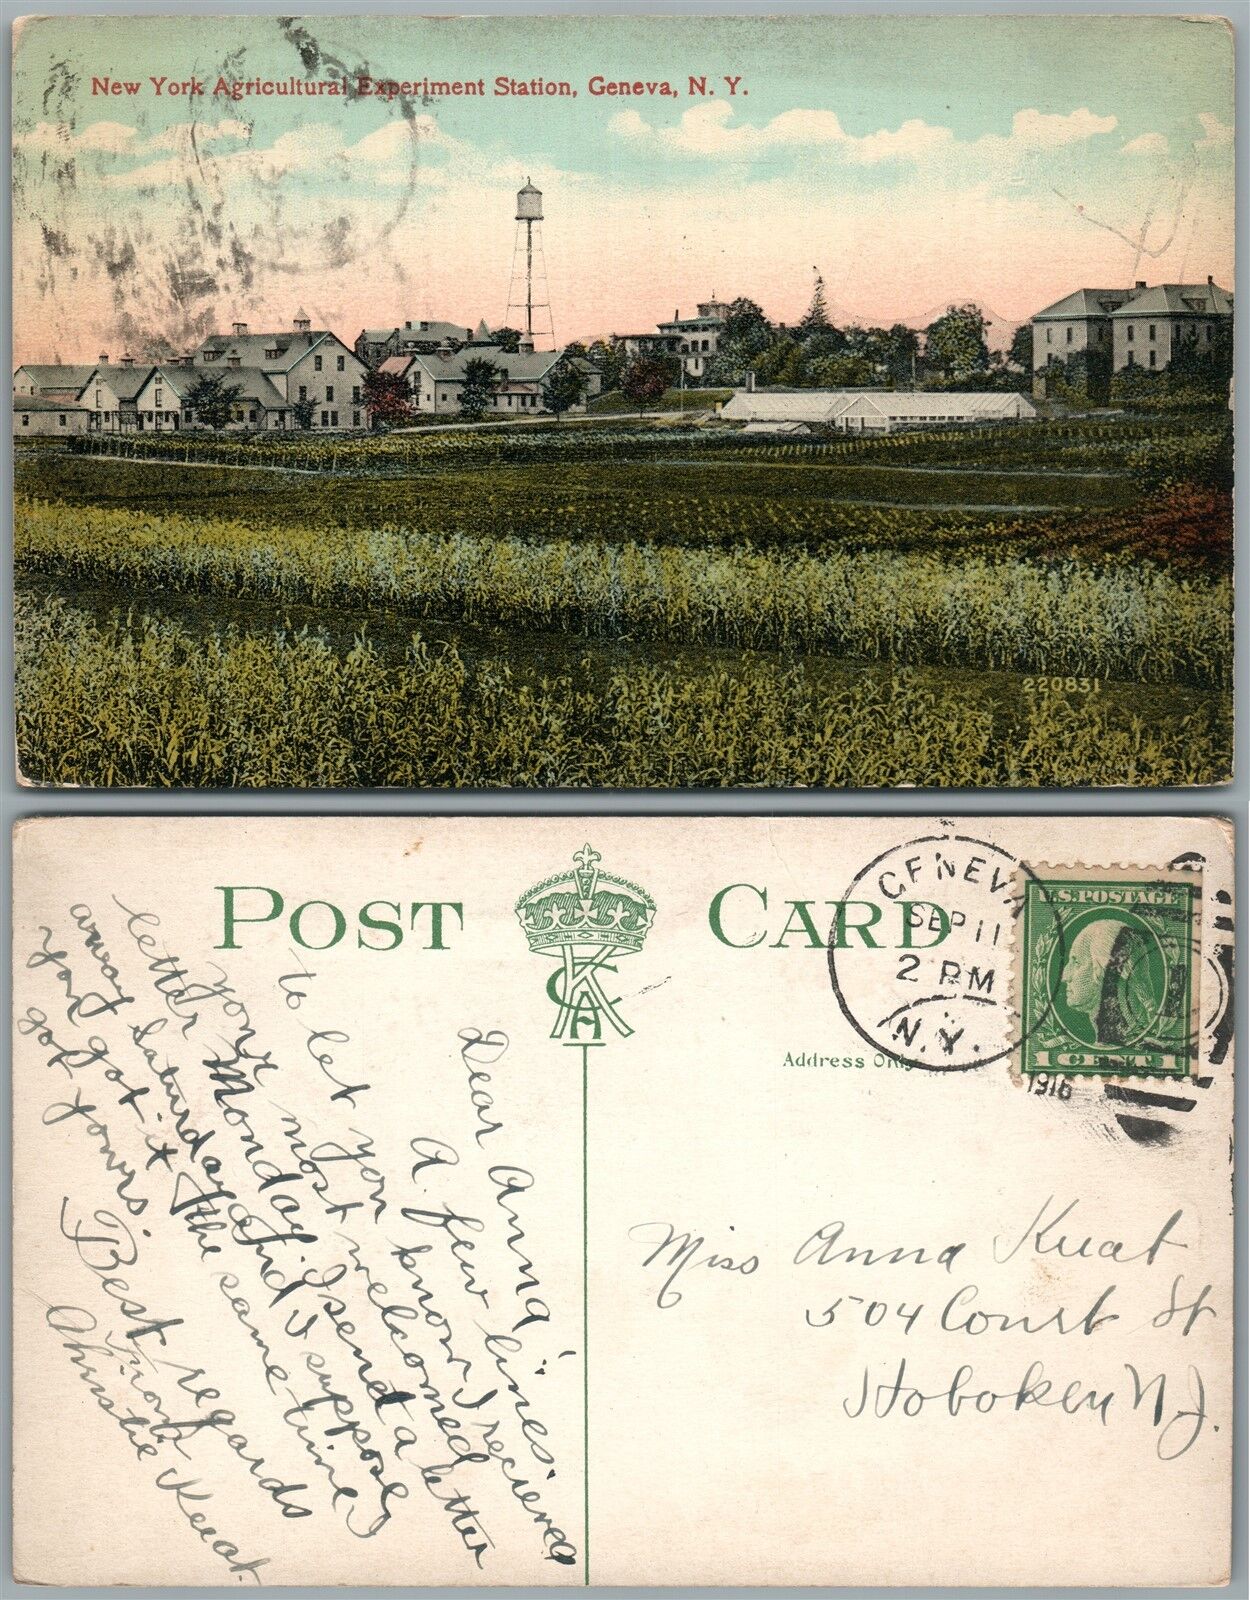 New York Agricultural Experiment Station, Geneva, N. Y.
220831
POST CARD
AKC
Address Only
GENEVA
SEP 11
2 PM
N.Y.
1916
U.S. POSTAGE
1 CENT 1
Dear Anna:
A few lines
to let you know I recieved
your most welcomed
letter Monday. I send a letter
away Saturday and I suppose
you got it the same time I
got yours.
Best regards
from
Christie Kuat.
Miss Anna Kuat
504 Court St
Hoboken N.J.